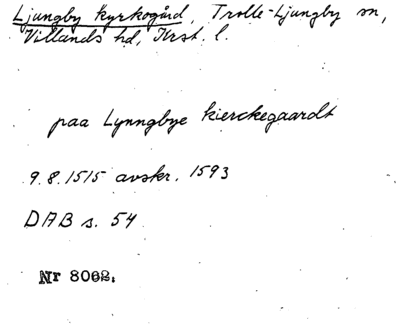 Ljungby kyrkogård, Trolle-Ljungby sn,
Villands hd, Krst. l.
paa Lynngbye kierckegaardt
9.8.1515 avskr. 1593
DAB s. 54
Nr 8062.